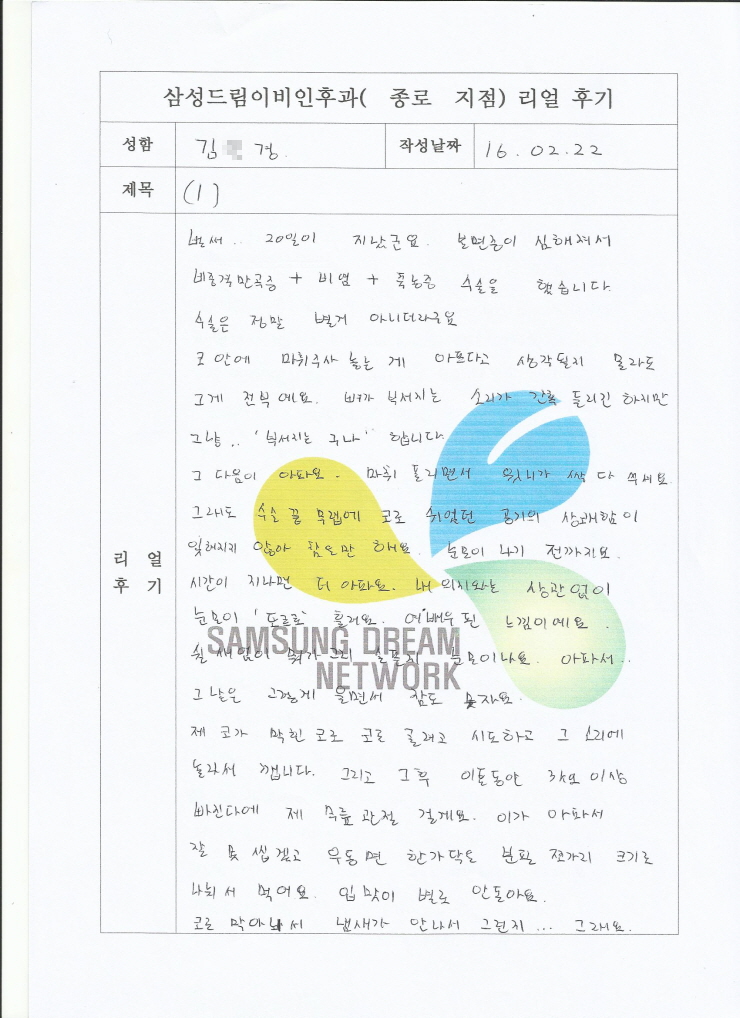 삼성드림이비인후과( 종로 지점) 리얼 후기
성함 김 경. 작성날짜 16.02.22
제목 (1)
리얼 후기
벌써.. 20일이 지났군요. 불면증이 심해져서
비중격만곡증 + 비염 + 축농증 수술을 했습니다
수술은 정말 별거 아니더라구요
코 안에 마취주사 놓는 게 아프다고 생각될지 몰라도
그게 전부예요. 뼈가 부서지는 소리가 간혹 들리긴 하지만
그냥.. '부서지는 구나' 합니다
그 다음이 아파요. 마취 풀리면서 윗니가 싹 다 쑤셔요.
그래도 수술 끝 무렵에 코로 쉬었던 공기의 상쾌함이
잊혀지지 않아 참을만 해요. 눈물이 나기 전까지요.
시간이 지나면 더 아파요. 내 의지와는 상관없이
눈물이 '또르르' 흘러요. 여배우 된 느낌이에요.
쉴 새없이 뭐가 그리 슬픈지 눈물이나요. 아파서..
그 날은 그렇게 울면서 잠도 못자요.
제 코가 막힌 코로 코로 골려고 시도하고 그 소리에
놀라서 깹니다. 그리고 그 후 이틀동안 3시요 이상
빠진다에 제 무릎 관절 걸게요. 이가 아파서
잘 못 씹겠고 우동면 한가닥도 분필 쪼가리 크기로
나눠서 먹어요. 입맛이 별로 안돌아요.
코로 막아놔서 냄새가 안나서 그런지... 그래요.
SAMSUNG DREAM
NETWORK